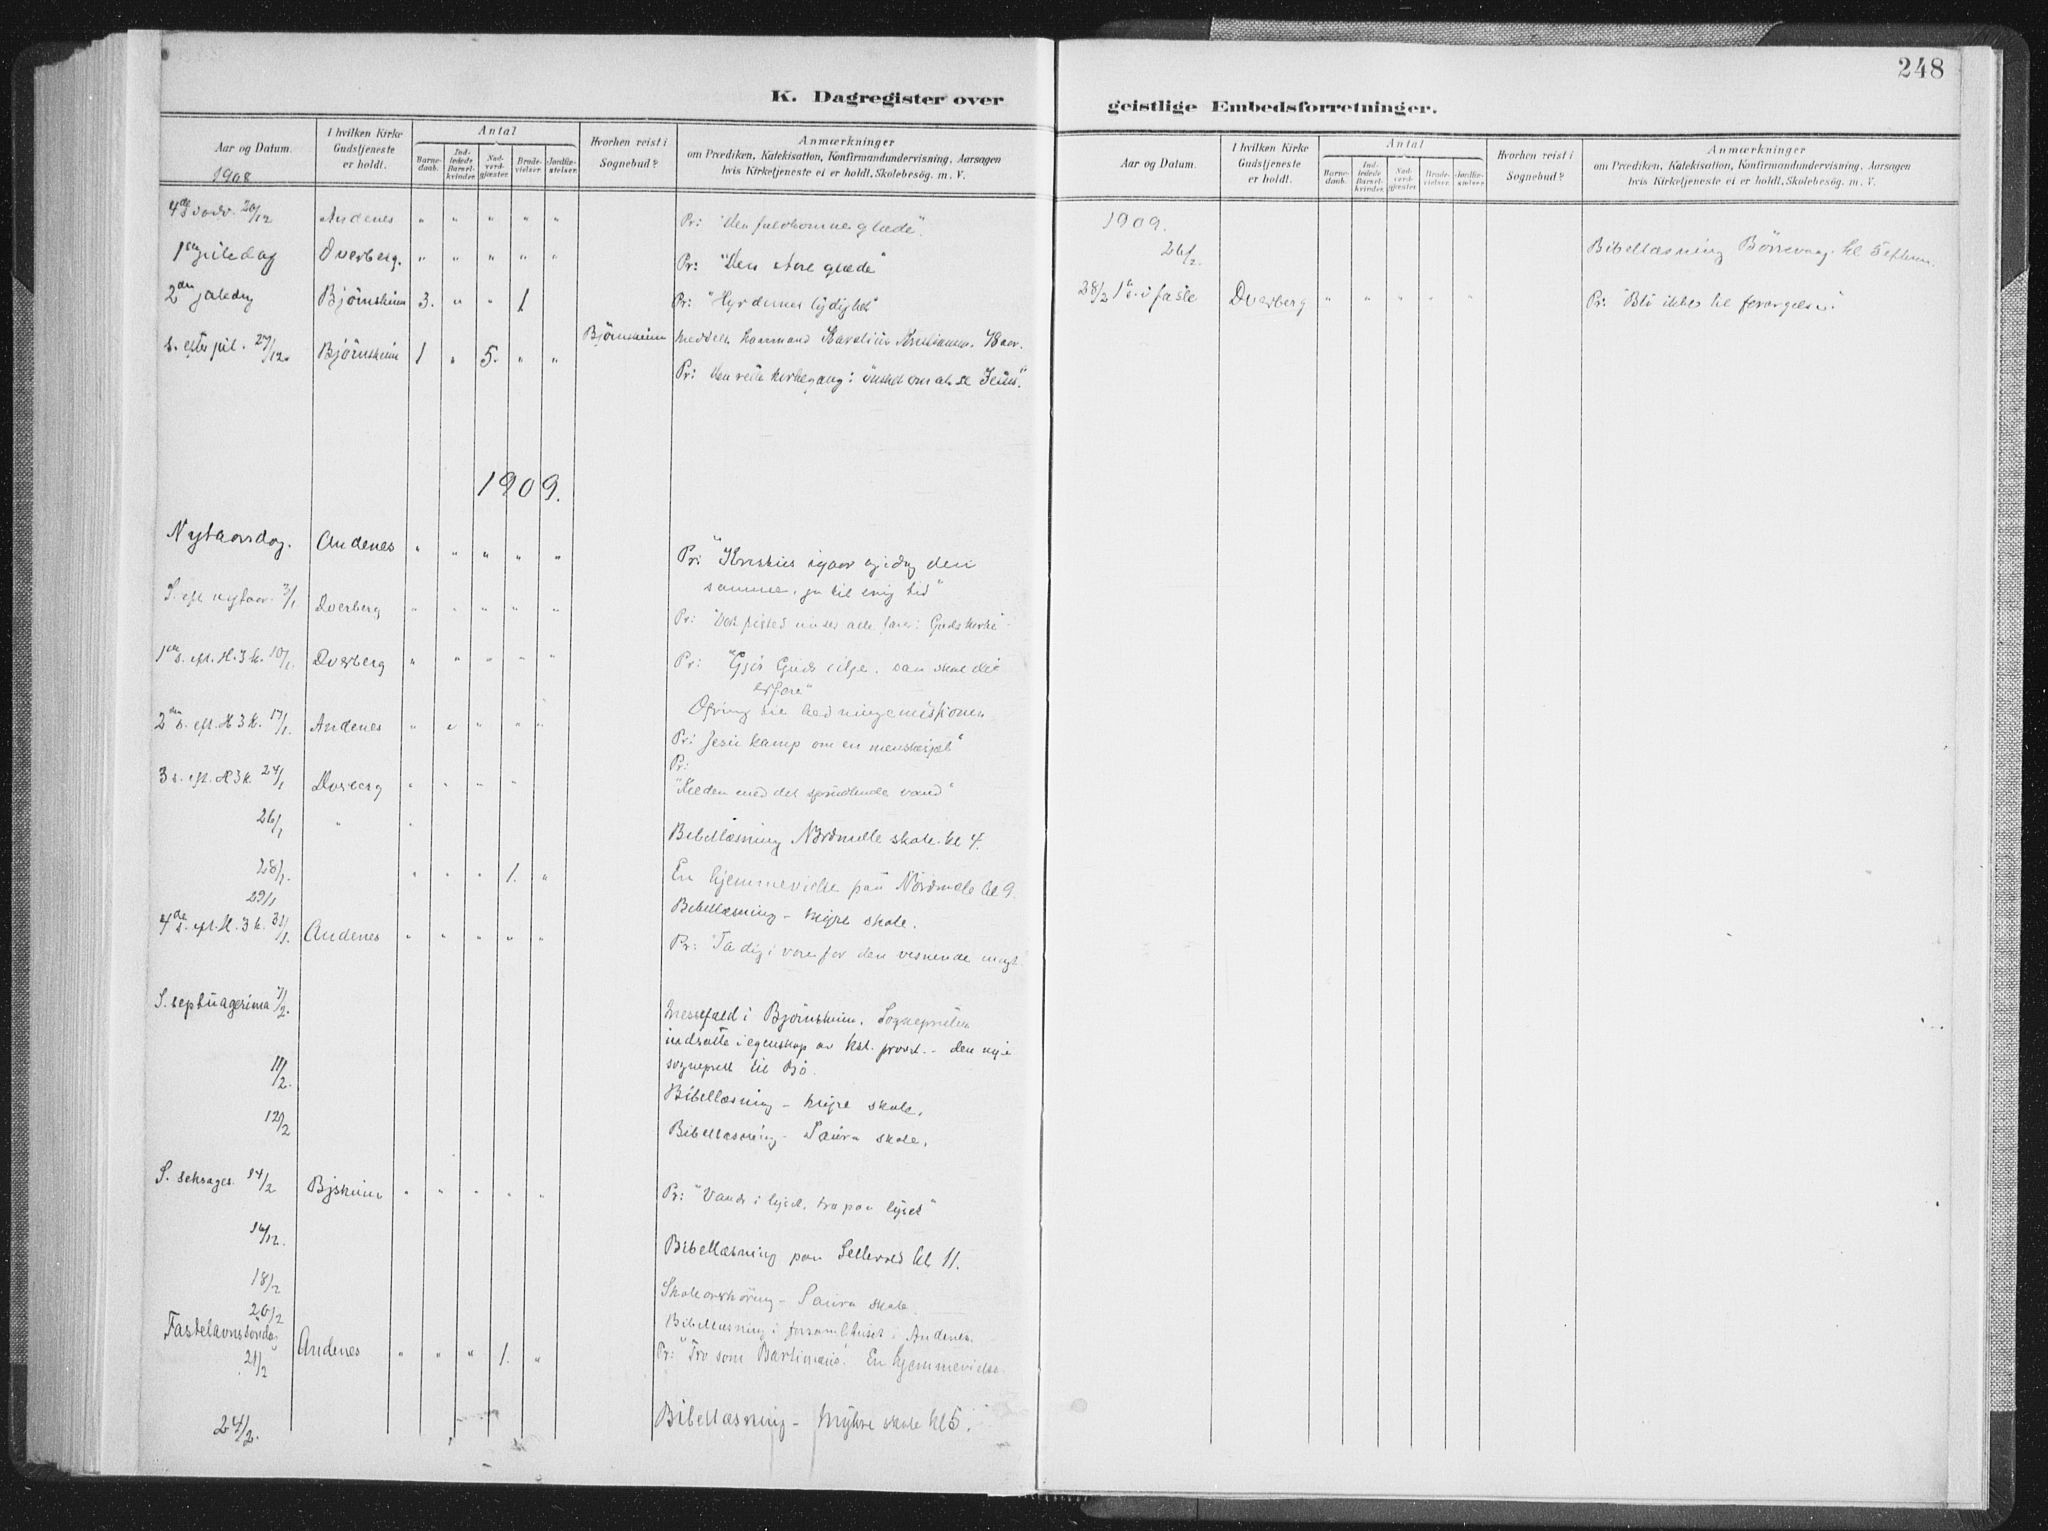 K. Dagregister over
Aar og Datum.
I hvilken Kirke Gudstjeneste er holdt.
Antal
Barnedaab.
Indledede Barselkvinder.
Nadverdgjæster.
Brudevielser.
Jordfæstelser.
Hvorhen reist i Sognebud?
Anmærkninger
om Prædiken, Katekisation, Konfirmandundervisning, Aarsagen
hvis Kirketjeneste ei er holdt, Skolebesög. m. V.
1908
20/12 Andenes " " " " " Pr: "Den fuldkomne glæde".
1ste juledag Dverberg. " " " " " Pr: "Den store glæde"
2den juledag Bjørnskinn 3. " " 1 Pr: "Hyrdernes lydighet"
S. efter jul. 27/12. Bjørnskinn 1 " 5. " " Bjørnskinn
Pr: Den rette kirkegang: ønsket om at se Jesus."
1909.
Nytaarsdag. Andenes " " " " " Pr: "Kristus igaar og idag den
samme, ja til evig tid"
S. eft nytaar. 3/1 Dverberg " " " " " Pr:
1ste s. eft. H. 3 k. 10/1. Dverberg " " " " " Pr: "Gjør Guds vilje, saa skal du
erfare"
2den s. eft. H 3 k. 17/1. Andenes " " " " " Ofring til hedningemissionen
Pr: Jesu kamp om en menskesjæl"
3 s. eft. H 3 k 24/1 Dverberg " " " " Pr:
"Kilden med det sprudlende vand"
26/1 " Bibellæsning Nordmele skole. kl 4.
28/1. " " " 1. " En hjemmevielse paa Nordmele kl 9.
29/1 Bibellæsning - Myre skole.
4de s. eft. H. 3 k. 31/1. Andenes " " " " " Pr: "Ta dig i vare for den
S. septuagesima 7/2. Messefald i Bjørnskinn. Sogneprsten
indsatte i egenskap av kst. provst - den nye
sogneprest til Bø.
11/2. Bibellæsning - Myre skole.
12/2 Bibellæsning - Saura skole.
S. seksages. 14/2 Bjskinn " " " " " Pr: "Vandr i lyset, tro paa lyset"
16/2. Bibellæsning paa kl 11.
18/2 Skole - Saura skole.
20/2 Bibellæsning i forsamlhuset i Andenes.
Fastelavnssøndag 21/2 Andenes " " " 1. " Pr: "Tro som Bartimæus". En hjemmevielse.
24/2. Bibellæsning - Myhre skole kl 5.
248
geistlige Embedsforretninger.
Aar og Datum.
I hvilken Kirke Gudstjeneste er holdt.
Antal
Barnedaab.
Indledede Barselkvinder.
Nadverdgjæster.
Brudevielser.
Jordfæstelser.
Hvorhen reist i Sognebud?
Anmærkninger
om Prædiken, Katekisation, Konfirmandundervisning, Aarsagen
hvis Kirketjeneste ei er holdt, Skolebesög. m. V.
1909.
26/2. Bibellæsning Børrevaag. kl 5 efterm.
28/2 1ste s. i faste Dverberg " " " " " Pr: "Bli ikke til forargelse."